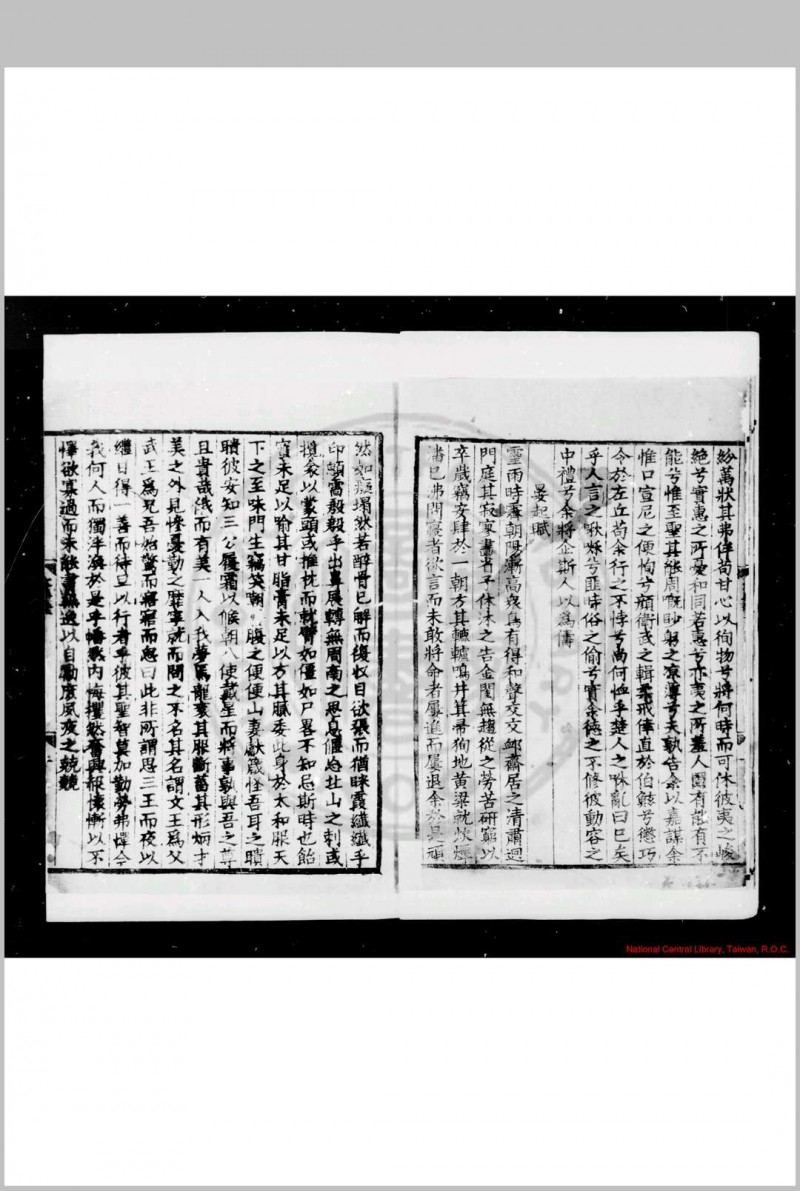 紛萬狀其弗侔苟甘心以徇物兮將何時而可休彼夷之峻
絶兮實惠之所憂和同若惠兮亦夷之所羞人固有能有不
能兮惟至聖其能周嘅眇躬之凉薄兮夫孰告余以嘉謀余
惟口宣尼之便恂兮顔衛武之輯柔戒倖直於伯鯀兮懲巧
令於左丘苟余行之不悖兮尚何恤乎楚人之咻亂曰已矣
乎人言之啾啾兮匪時俗之偷兮實余德之不修彼動容之
中禮兮余將企斯人以爲儔
晏起賦
靈雨時霽朝陽漸高衆鳥有得和聲交交鄭齋居之清肅迴
門庭其寂寥書者予休沐之告金閨無趨從之勞苦研窮以
卒歲竊安肆於一朝方其轆轤鳴井箕帚徇地黄粱就炊煙
渚已弗門寢者欲言而未敢將命者屢進而屢退余於是頑
然如癡塌然若醉骨已解而復收目欲張而猶眯靄纖纖乎
印頓雷殷殷乎出鼻展轉無周南之思息偃怂北山之刺或
攬衾以蒙頭或推枕而就臂如僵如尸畧不知忌斯時也飴
寳未足以喻其甘脂膏未足以方其膩委此身於太和服天
下之至味門生竊笑朝 腹之便便山妻獻箴怪吾耳之聵
聵彼安知三公履霜以候朝八使戴星而將事孰與吾之尊
且貴哉俄而有美一人入我夢焉龍衮其服斷菑其形炳才
美之外見慘憂勤之靡寧就而問之不名其名謂文王爲父
武王爲兄吾始驚而寤寤而思曰此非所謂思三王而夜以
繼日得一善而待旦以行者乎彼其聖智莫加勤勞弗憚今
我何人而獨泮渙於是乎幡然内悔攫然奮興報懷慚以不
憚欲寡過而未能書無逸以自勵庶夙夜之兢兢
National Central Library, Taiwan, R.O.C.